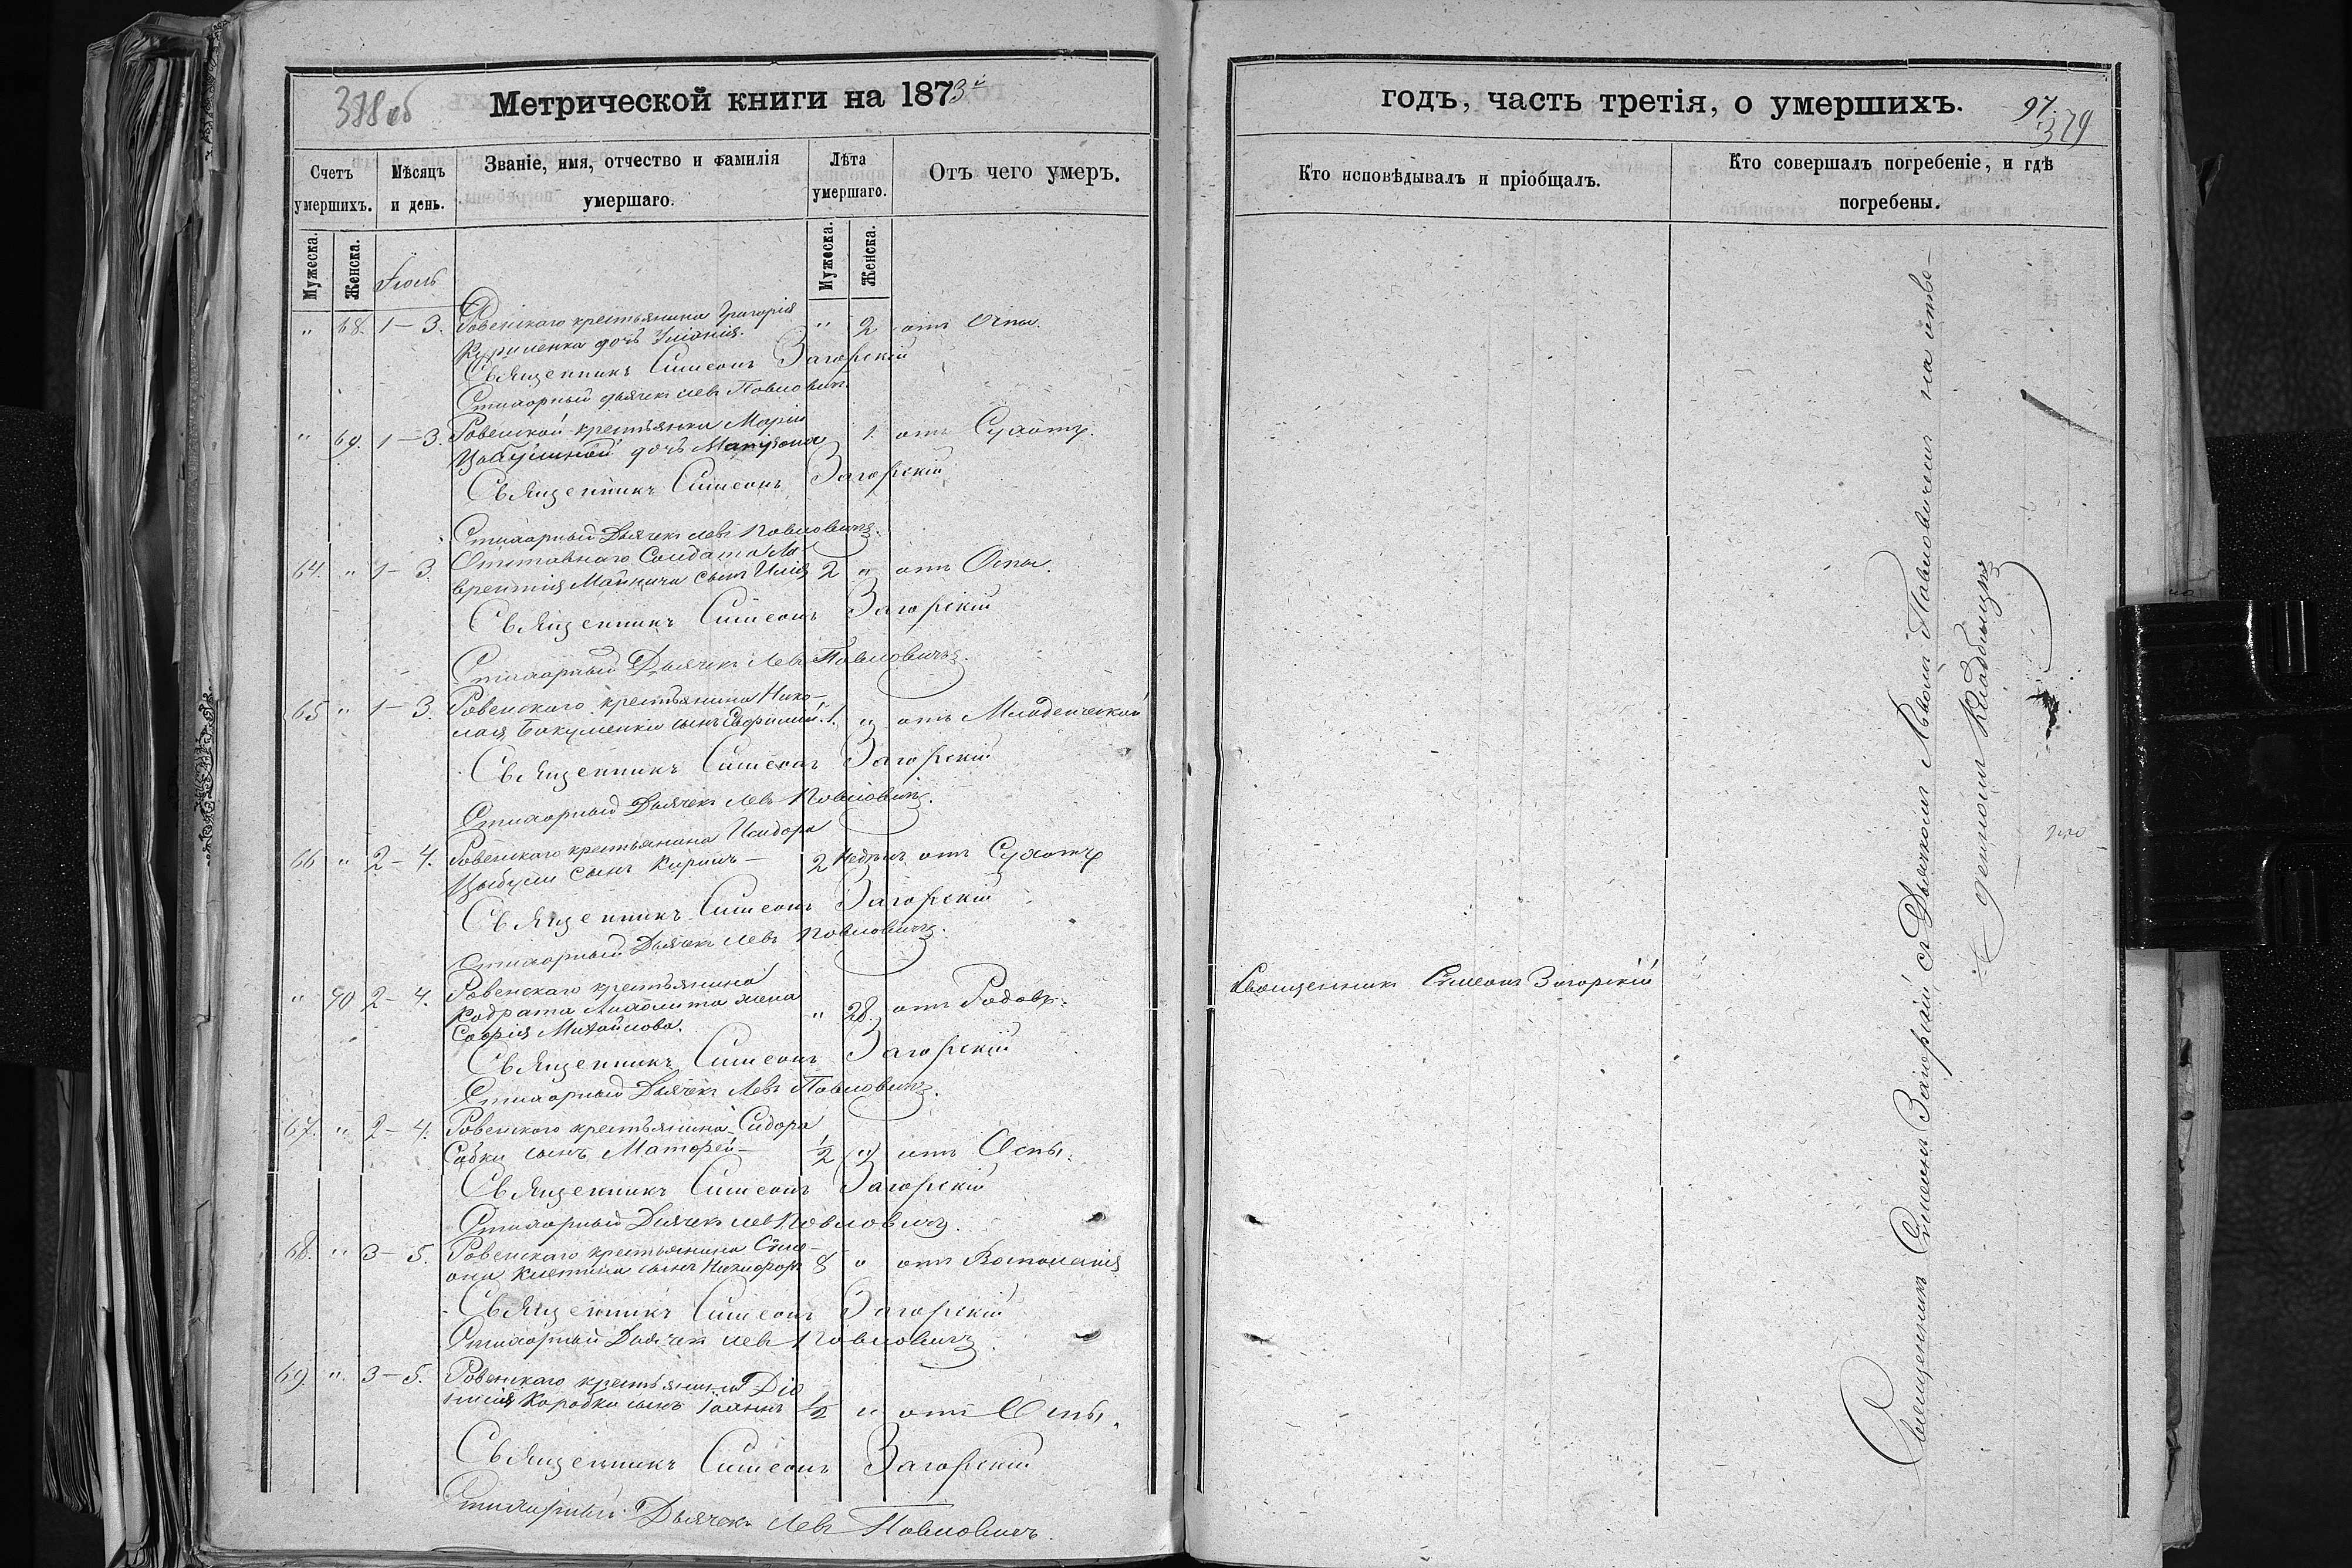 378 об
Метрической книги на 1873й
Счетъ умершихъ.
Мѣсяцъ и день.
Званіе, имя, отчество и фамилія умершаго.
Лѣта умершаго.
Отъ чего умеръ.
Мужеска.
Женска.
Мужеска.
Женска.
" 68. 1–3. Ровенскаго крестьянина Григорія " 2 отъ Оспы.
дочь
Священникъ Симеонъ Загорскій
Стихарный дьячекъ Левъ Павловичъ
" 69. 1–3. Ровенской крестьянки Маріи
дочь Матрона 1. отъ Сухотъ.
Священникъ Симеонъ Загорскій
Стихарный Дьячекъ Левъ Павловичъ.
64. " 1–3. Отставнаго Солдата Ла-
врентія сынъ Илія 2 " отъ Оспы.
Священникъ Симеонъ Загорскій
Стихарный Дьячекъ Левъ Павловичъ.
65 " 1–3. Ровенскаго крестьянина Нико-
лая Бакуменка сынъ Евфимій. 1. " отъ Младенческой
Священникъ Симеонъ Загорскій
Стихарный Дьячекъ Левъ Павловичъ.
66 " 2–4. Ровенскаго крестьянина Исидора
Цыбули сынъ Кирилъ – 2 недѣли отъ Сухотъ
Священникъ Симеонъ Загорскій
Стихарный Дьячекъ Левъ Павловичъ.
" 70 2–4. Ровенскаго крестьянина
Кодрата жена " 28. отъ Родовъ.
Софія Михайлова.
Священникъ Симеонъ Загорскій
Стихарный Дьячекъ Левъ Павловичъ.
67. " 2–4. Ровенскаго крестьянина Сидора
сынъ Матфей – 1/2 " отъ Оспы.
Священникъ Симеонъ Загорскій
Стихарный Дьячекъ Левъ Павловичъ.
68. " 3–5. Ровенскаго крестьянина Симе-
она сынъ Никифоръ 8 " отъ Воспаленія
Священникъ Симеонъ Загорскій
Стихарный Дьячекъ Левъ Павловичъ.
69. " 3–5. Ровенскаго крестьянина Діо
нисія Коробки сынъ Іоаннъ 1/2 " отъ Оспы.
Священникъ Симеонъ Загорскій
Стихарный Дьячекъ Левъ Павловичъ.
годъ, часть третія, о умершихъ.
97.
379
Кто исповѣдывалъ и пріобщалъ.
Кто совершалъ погребеніе, и гдѣ погребены.
Священникъ Симеонъ Загорскій
Священникъ Симеонъ Загорскій съ Дьячкомъ Львомъ Павловичемъ на отве-
денномъ Кладбищѣ